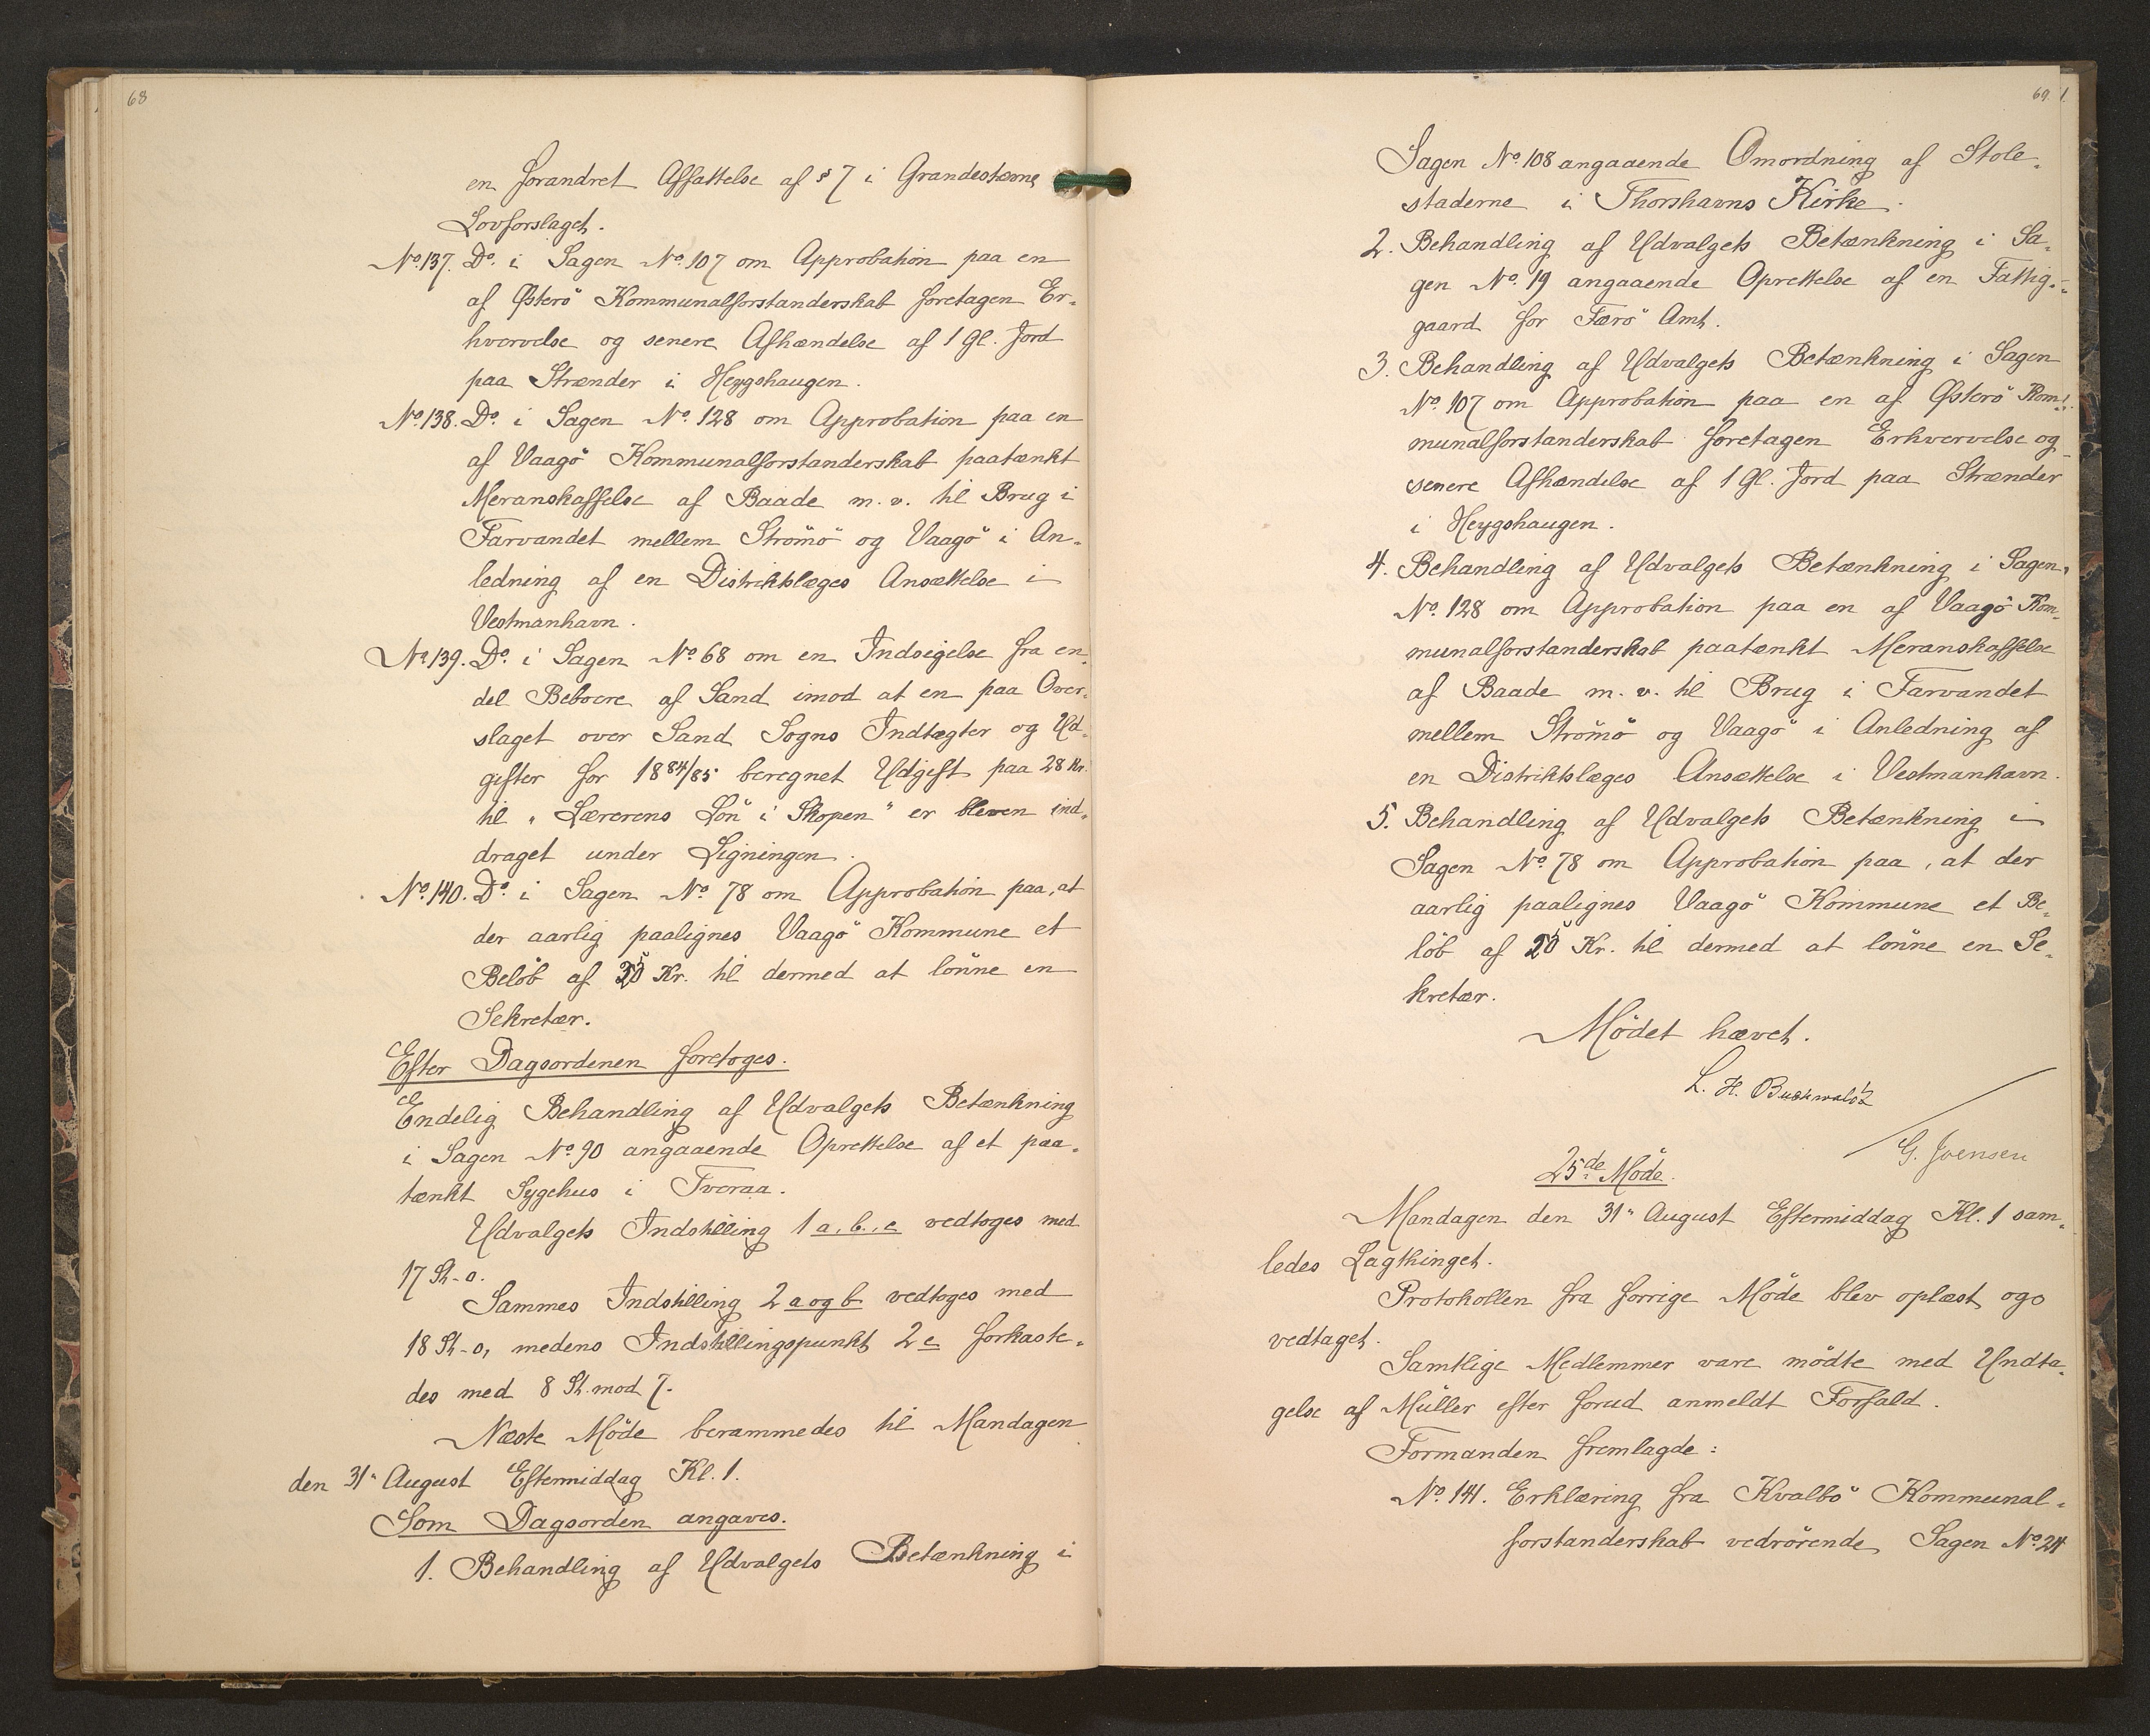 68
en forandret Affattelse af § 7 i Grandestævne
Lovforslaget.
No. 137. Do. i Sagen No. 107 om Approbation paa en
af Østerö Kommunalforstanderskab foretagen Er-
hvervelse og senere Afhændelse af 1 Gl. Jord
paa Strænder i Heygshaugen.
No. 138. Do. i Sagen No. 128 om Approbation paa en
af Vaagö Kommunalforstanderskab paatænkt
Meranskaffelse af Baade m. v. til Brug i
Farvandet mellem Strömö og Vaagö i An-
ledning af en Distriktslæges Ansættelse i
Vestmanhavn.
No. 139. Do. i Sagen No. 68 om en Indsigelse fra en
del Beboere af Sand imod at en paa Over-
slaget over Sand Sogns Indtægter og Ud-
gifter for 1884/85 beregnet Udgift paa 28 Kr.
til „Lærerens Lön i Skopen" er bleven ind-
draget under Ligningen.
No. 140. Do. i Sagen No. 78 om Approbation paa, at
der aarlig paalignes Vaagö Kommune et
Belöb af Kr. til dermed at lönne en
Sekretær.
Efter Dagsordenen foretoges.
Endelig Behandling af Udvalgets Betænkning
i Sagen No. 90 angaaende Oprettelse af et paa-
tænkt Sygehus i Tveraa.
Udvalgets Indstilling 1 a, b, c vedtoges med
17 St-o.
Sammes Indstilling 2 a og b vedtoges med
18 St-o, medens Indstillingspunkt 2 c forkaste-
des med 8 St. mod 7.
Næste Möde berammedes til Mandagen
den 31" August Eftermiddag Kl. 1.
Som Dagsorden angaves.
1. Behandling af Udvalgets Betænkning i
69
Sagen No. 108 angaaende Omordning af Stole-
staderne i Thorshavns Kirke.
2. Behandling af Udvalgets Betænkning i Sa-
gen No. 19 angaaende Oprettelse af en Fattig-
gaard for Færö Amt.
3. Behandling af Udvalgets Betænkning i Sagen
No. 107 om Approbation paa en af Østerö Kom-
munalforstanderskab foretagen Erhvervelse og
senere Afhændelse af 1 Gl. Jord paa Strænder
i Heygshaugen.
4. Behandling af Udvalgets Betænkning i Sagen
No. 128 om Approbation paa en af Vaagö Kom-
munalforstanderskab paatænkt Meranskaffelse
af Baade m. v. til Brug i Farvandet
mellem Strömö og Vaagö i Anledning af
en Distriktslæges Ansættelse i Vestmanhavn.
5. Behandling af Udvalgets Betænkning i
Sagen No. 78 om Approbation paa, at der
aarlig paalignes Vaagö Kommune et Be-
löb af Kr. til dermed at lönne en Se-
kretær.
Mödet hævet.
L. H. Buchwaldt
G. Joensen
25de Möde.
Mandagen den 31" August Eftermiddag Kl. 1 sam-
ledes Lagthinget.
Protokollen fra forrige Möde blev oplæst og
vedtaget.
Samtlige Medlemmer vare mödte med Undta-
gelse af Müller efter forud anmeldt Forfald.
Formanden fremlagde:
No. 141. Erklæring fra Kvalbö Kommunal-
forstanderskab vedrörende Sagen No. 24